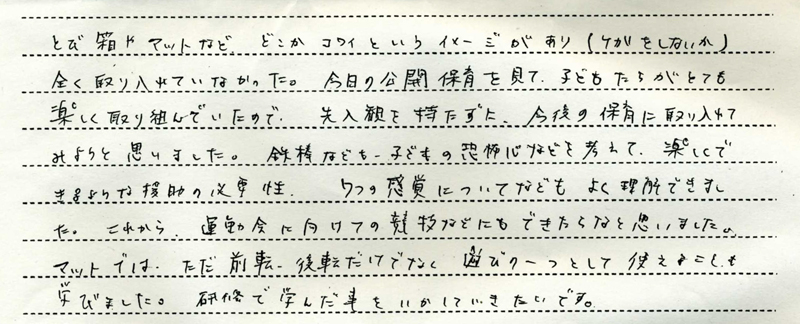 とび箱やマットなど、どこかコワイというイメージがあり（ケガをしないか）
全く取り入れていなかった。今日の公開保育を見て、子どもたちがとても
楽しく取り組んでいたので、先入観を持たずに、今後の保育に取り入れて
みようと思いました。鉄棒なども、子どもの恐怖心などを考えて、楽しくで
きるような援助の必要性、7つの感覚についてなども よく理解できまし
た。これから、運動会に向けての競技などにもできたらなと思いました。
マットでは、ただ前転、後転だけでなく 遊びの一つとして使えることも
学びました。研修で学んだ事をいかしていきたいです。